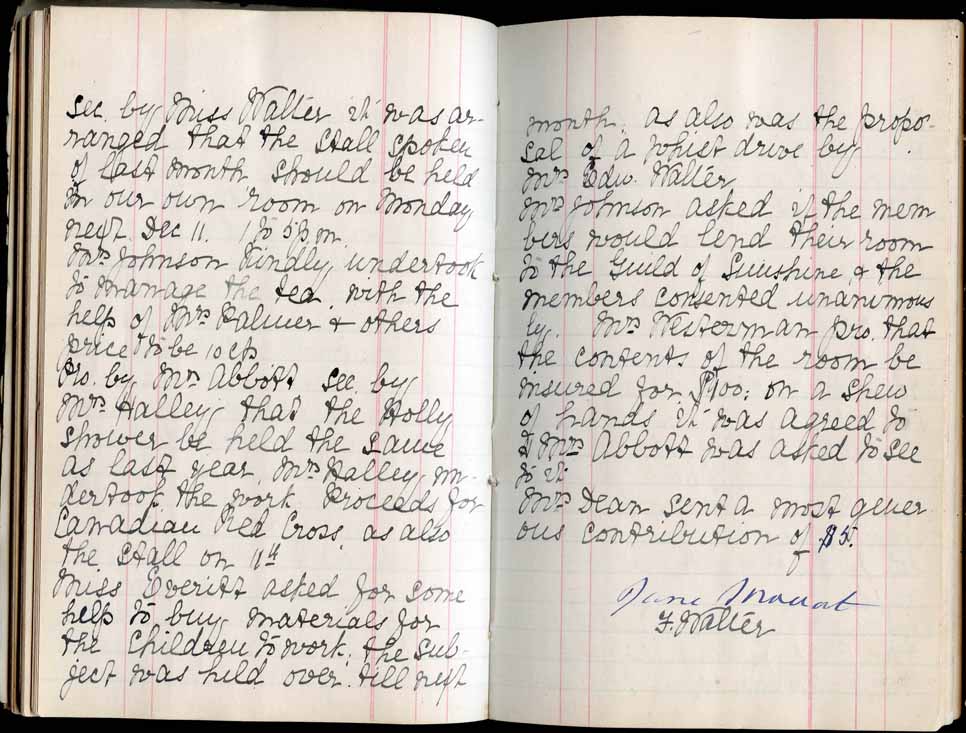 sec. by Miss Walter it was ar-
ranged that the stall spoken
of last month should be held
in our own room on Monday
next. Dec 11. 1 to 5 p.m.
Mrs Johnson kindly undertook
to manage the tea, with the
help of Mrs Palmer & others
price to be 10 cts
Pro. by Mrs Abbott sec. by
Mrs Halley that the Holly
shower be held the same
as last year, Mrs Halley un-
dertook the work. Proceeds for
Canadian Red Cross, as also
the stall on 11th
Miss Everitt asked for some
help to buy materials for
the Children to work, the sub-
ject was held over till next
month. as also was the propo-
sal of a whist drive by
Mrs Edw. Walter
Mrs Johnson asked if the mem
bers would lend their room
to the Guild of Sunshine, & the
members consented unanimous
ly. Mrs Westerman pro. that
the contents of the room be
insured for $100: on a shew
of hands it was agreed to
& Mrs Abbott was asked to see
to it
Mrs Dean sent a most gener
ous contribution of $5.
Jane Mouat
F. Walter